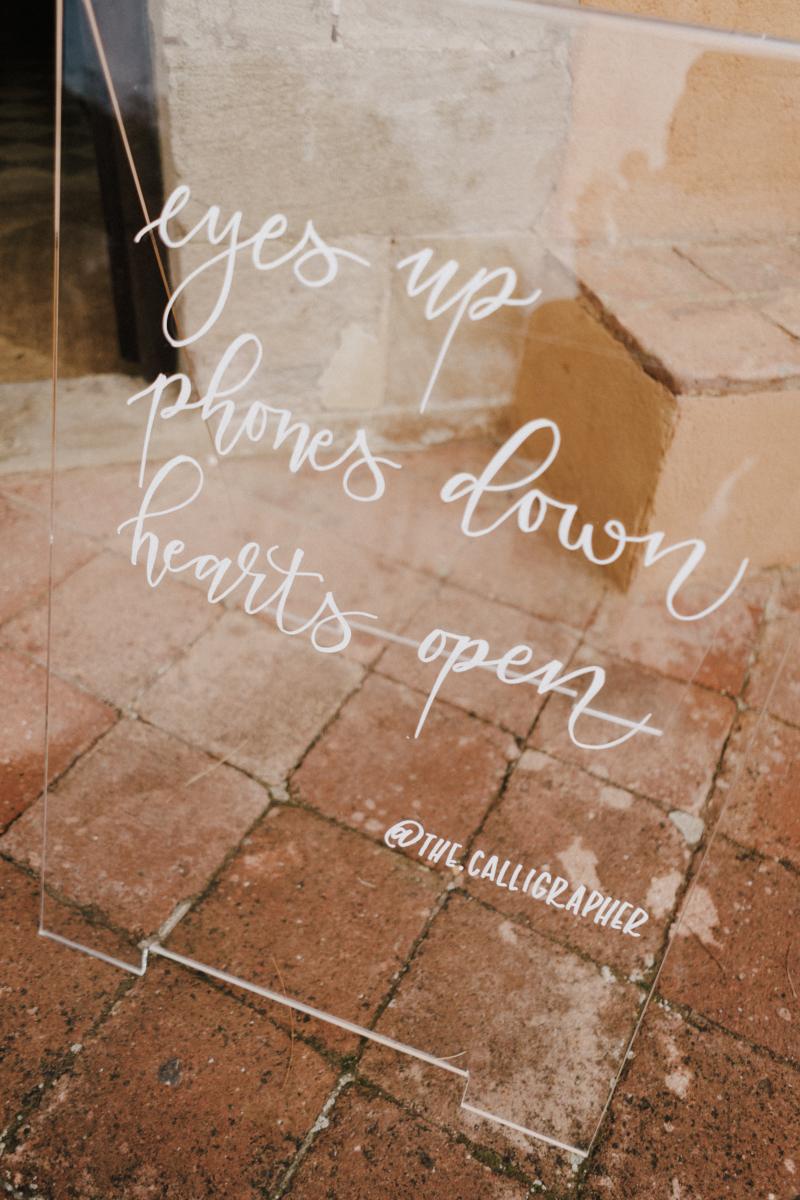 eyes up
phones down
hearts open
@THE.CALLIGRAPHER